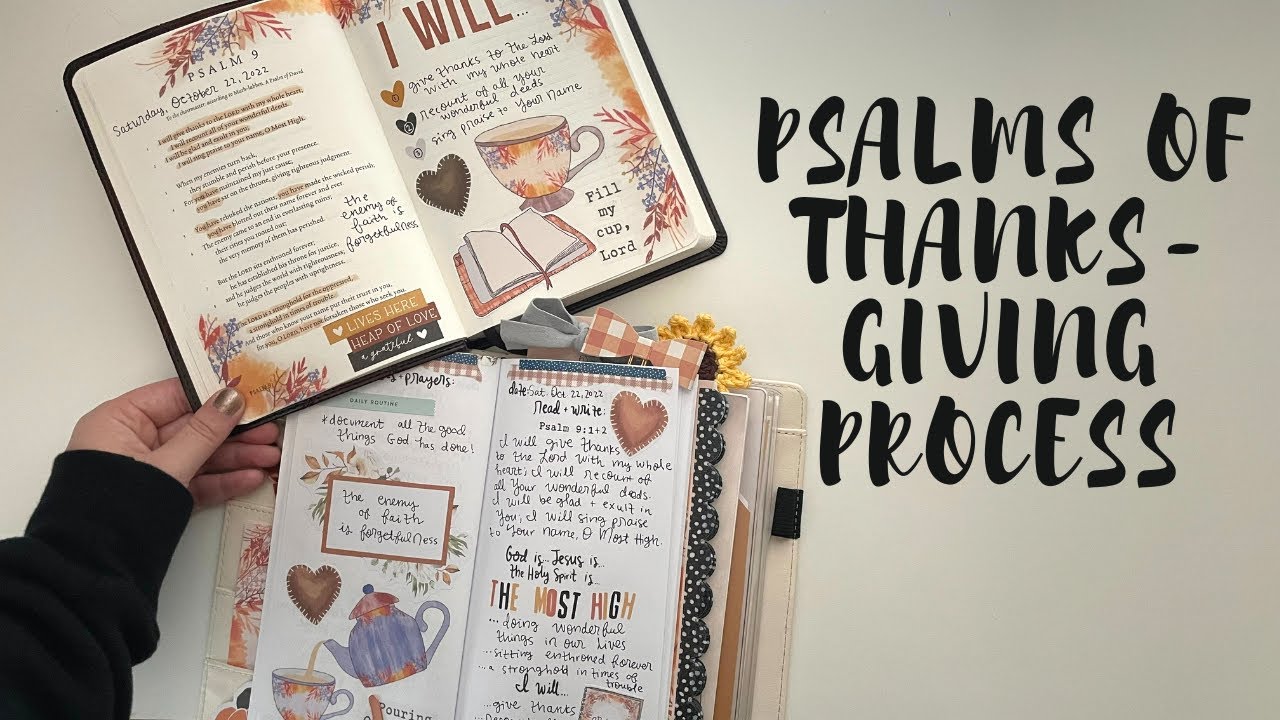 PSALM 9
Saturday, October 22, 2022
To the choirmaster: according to Muth-labben. A Psalm of David.
I will give thanks to the LORD with my whole heart;
I will recount of all your wonderful deeds.
I will be glad and exult in you;
I will sing praise to your name, O Most High.
When my enemies turn back,
they stumble and perish before your presence.
For you have maintained my just cause;
you have sat on the throne, giving righteous judgment.
You have rebuked the nations; you have made the wicked perish;
you have blotted out their name forever and ever.
The enemy came to an end in everlasting ruins;
their cities you rooted out;
the very memory of them has perished.
the
enemy of
faith is
forgetfulness
But the LORD sits enthroned forever;
he has established his throne for justice,
and he judges the world with righteousness;
he judges the peoples with uprightness.
The LORD is a stronghold for the oppressed,
a stronghold in times of trouble.
And those who know your name put their trust in you,
for you, O LORD, have not forsaken those who seek you.
LIVES HERE
HEAP OF LOVE
a grateful
I WILL...
1 give thanks to the Lord
with my whole heart
2 recount of all your
wonderful deeds
3 sing praise to Your name
Fill
my
cup,
Lord
+ prayers:
DAILY ROUTINE
*document all the good
things God has done!
the enemy
of faith
is forgetfulness
Pouring
date: Sat. Oct. 22, 2022
read + write:
Psalm 9:1+2
I will give thanks
to the Lord with my whole
heart; I will recount of
all Your wonderful deeds.
I will be glad + exult in
You; I will sing praise
to Your name, O Most High.
God is... Jesus is...
the Holy Spirit is...
THE MOST HIGH
...doing wonderful
things in our lives
...sitting enthroned forever
...a stronghold in times of
trouble
I will...
...give thanks
PSALMS OF
THANKS-
GIVING
PROCESS